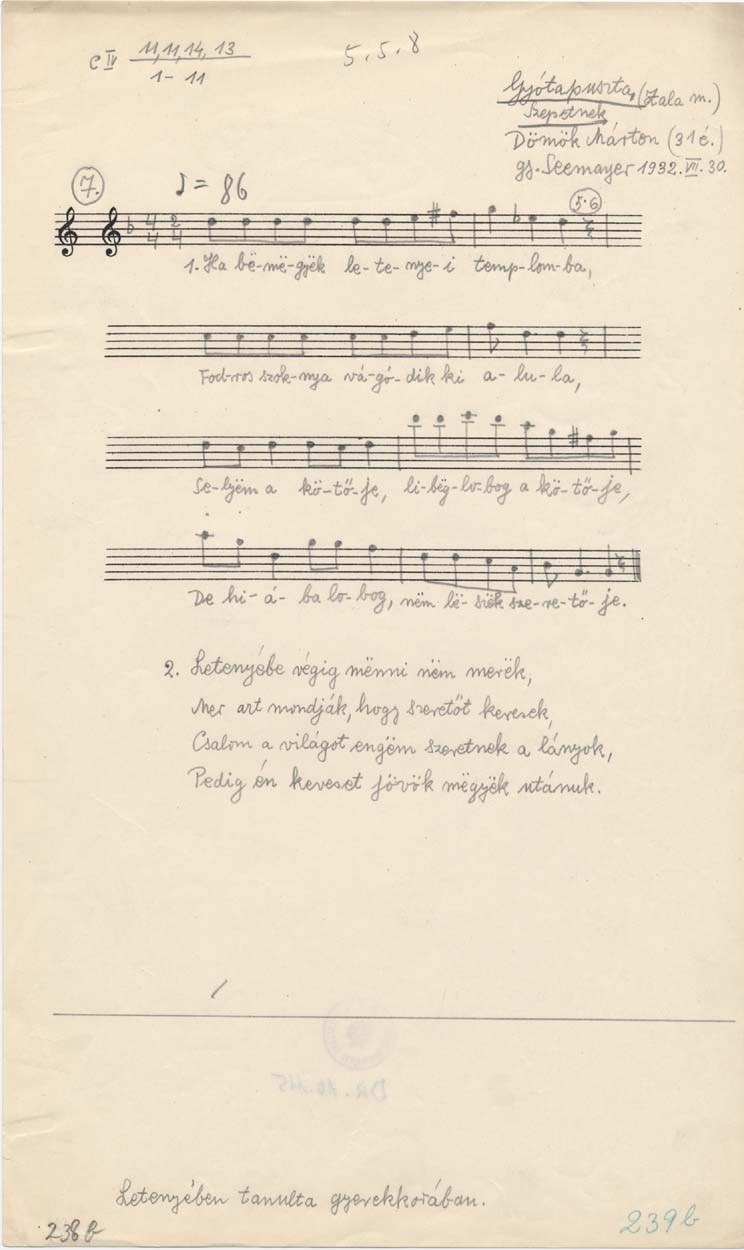 C IV 11, 11, 14, 13
1- 11
5. 5. 8
Gyótapuszta, (Zala m.)
Szepetnek
Dömök Márton (31 é.)
gy. Seemayer 1932. VII. 30.
7.
♩ = 86
5·6
4 2
4 4
1. Ha bë-më-gyëk le-te-nye-i temp-lom-ba,
Fod-ros szok-nya vá-gó-dik ki a-lu-la,
Se-lyëm a kö-tő-je, li-bëg-lo-bog a kö-tő-je,
De hi-á-ba lo-bog, nëm lë-szëk sze-re-tő-je.
2. Letenyébe végig mënni nëm merëk,
Mer azt mondják, hogy szeretőt keresek,
Csalom a világot engëm szeretnek a lányok,
Pedig én keveset jövök mëgyëk utánuk.
Letenyében tanulta gyerekkorában.
238 b
239 b